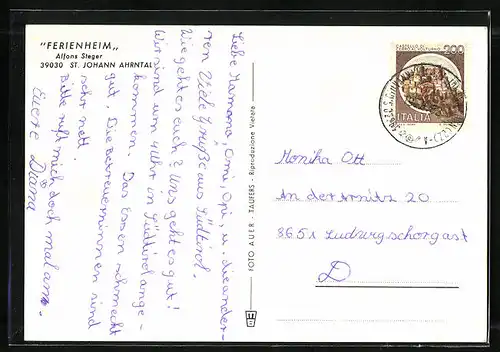 "FERIENHEIM„
Alfons Steger
39030 ST. JOHANN AHRNTAL
Liebe Mamama, Omi, Opi, u. die ander-
ren Viele Grüße aus Südtirol.
Wie geht es euch? Uns geht es gut!
Wir sind um 4 Uhr in Südtirol ange-
kommen. Das Essen schmeckt
gut. Die Betreuerninnen sind
sehr nett.
Bitte ruft mich doch mal an.
Euere Diana
FOTO AUER - TAUFERS - Riproduzione Vietata
200
ITALIA
Monika Ott
An der 20
8651 Ludwigschorgast
D